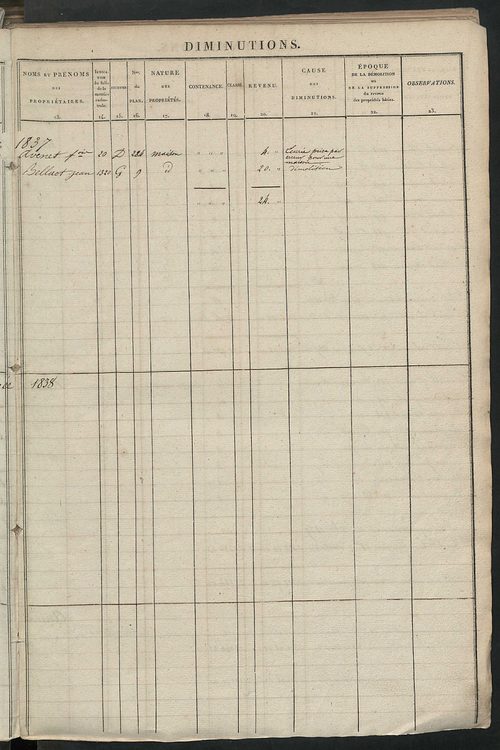 DIMINUTIONS.
NOMS ET PRÉNOMS DES PROPRIÉTAIRES. 13.
14.
SECTION. 15.
Nos. du PLAN. 16.
NATURE DES PROPRIÉTÉS. 17.
CONTENANCE. 18.
CLASSE. 19.
REVENU. 20.
CAUSE DES DIMINUTIONS. 21.
ÉPOQUE DE LA DÉMOLITION OU DE LA SUPPRESSION du revenu des propriétés bâties. 22.
OBSERVATIONS. 23.
1837
20 D 284 maison " " " 4. " Écurie prise par
erreur pour une
maison
Jean 1320 G 9 id " " " 20. " démolition
" " " 24. "
1838